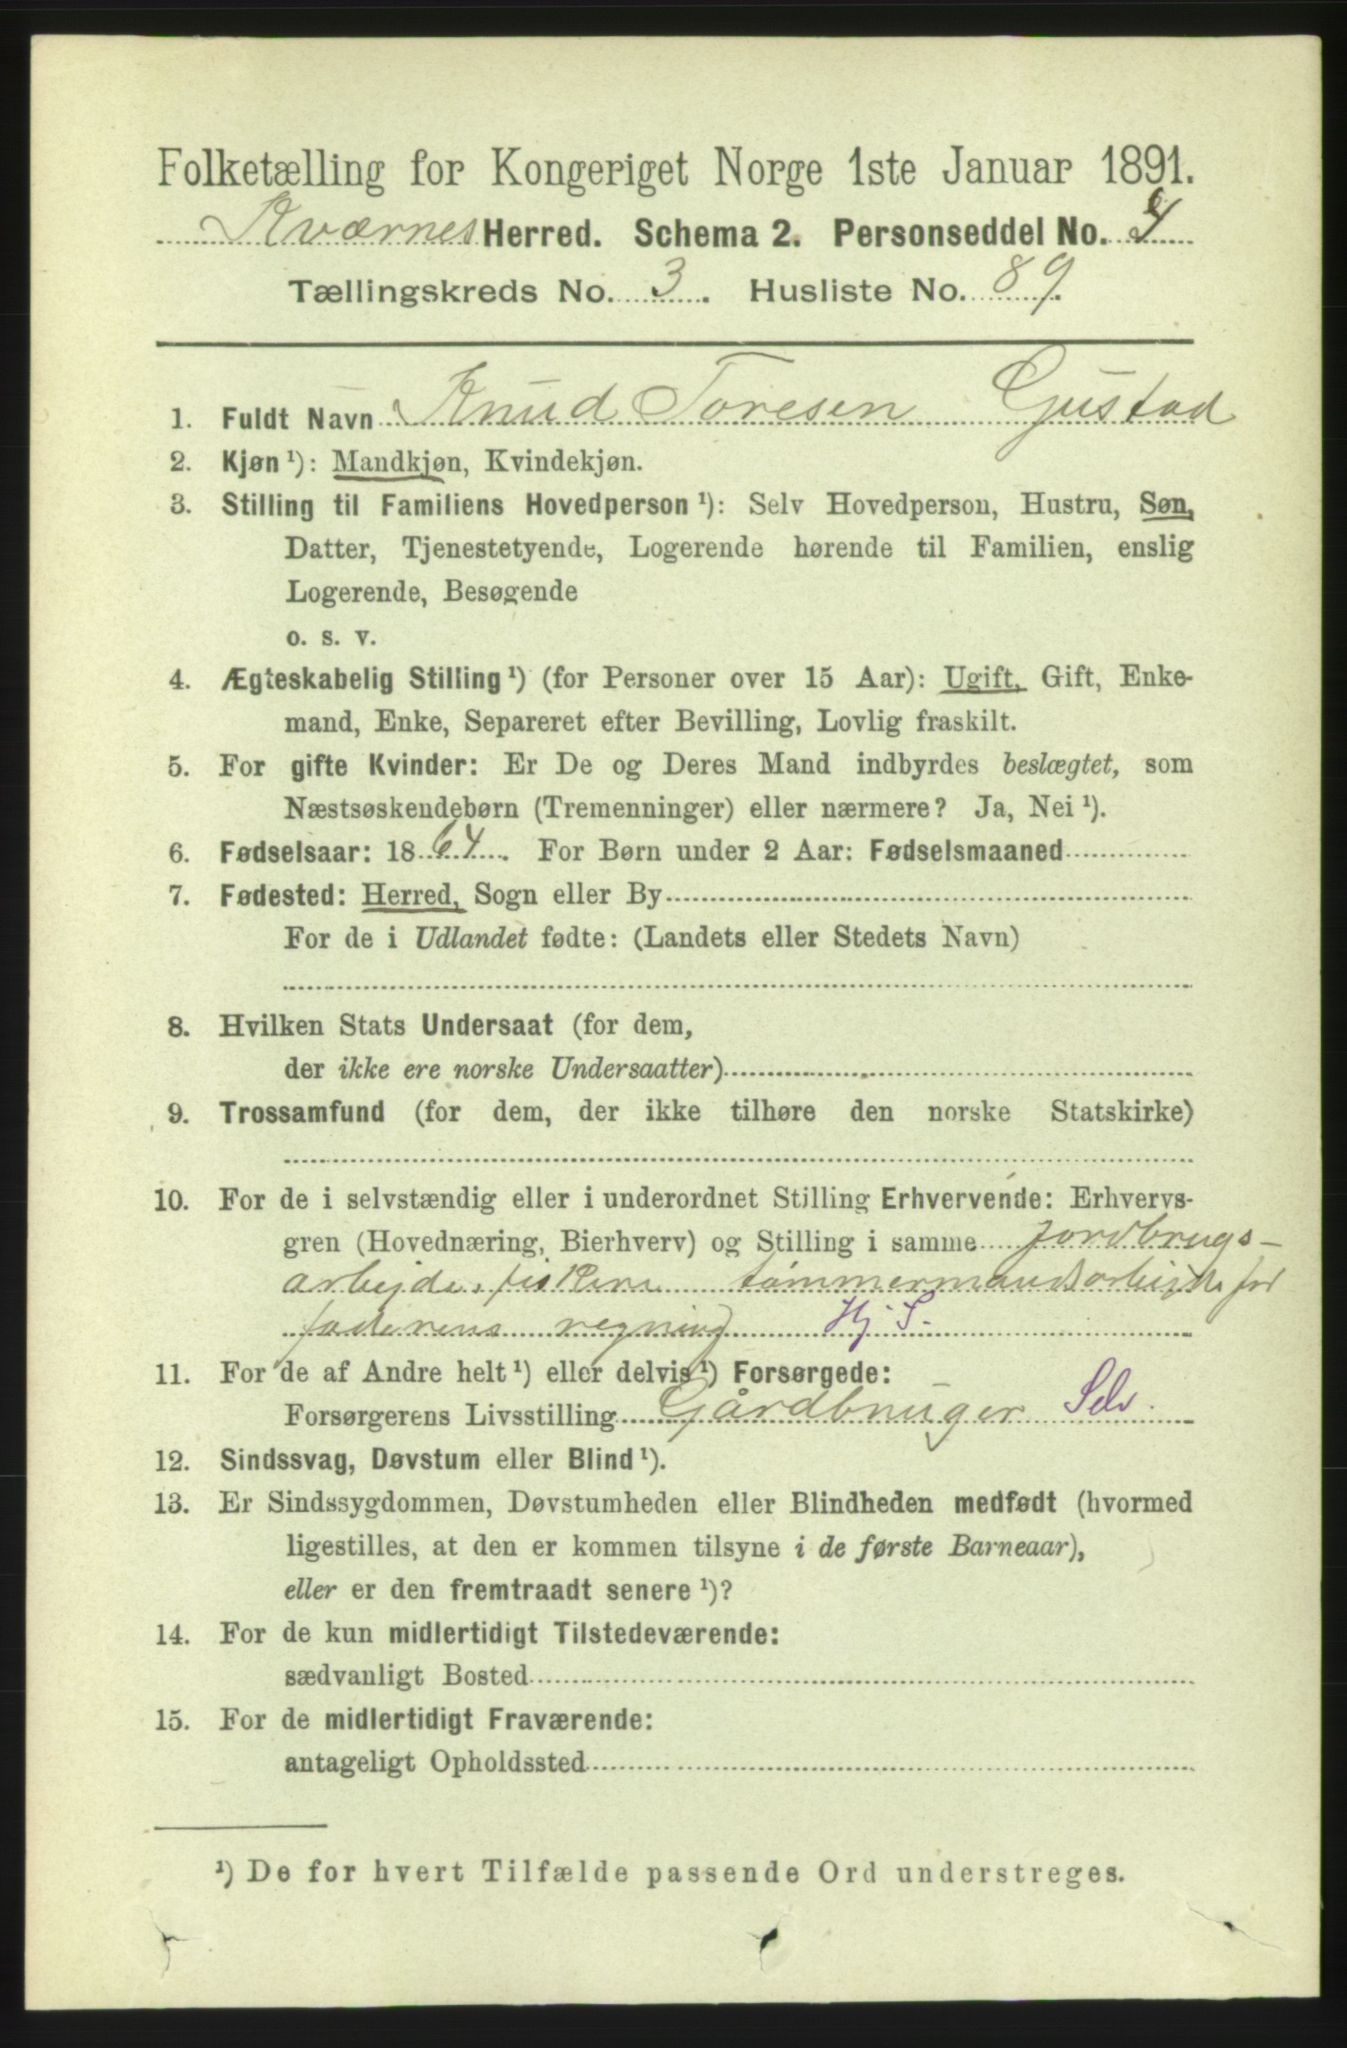 Folketælling for Kongeriget Norge 1ste Januar 1891.
Kværnes Herred. Schema 2. Personseddel No.
Tællingskreds No. 3. Husliste No. 89.
1. Fuldt Navn Knud Toresen Gustad
2. Kjøn ¹): Mandkjøn, Kvindekjøn.
3. Stilling til Familiens Hovedperson ¹): Selv Hovedperson, Hustru, Søn,
Datter, Tjenestetyende, Logerende hørende til Familien, enslig
Logerende, Besøgende
o. s. v.
4. Ægteskabelig Stilling ¹) (for Personer over 15 Aar): Ugift, Gift, Enke-
mand, Enke, Separeret efter Bevilling, Lovlig fraskilt.
5. For gifte Kvinder: Er De og Deres Mand indbyrdes beslægtet, som
Næstsøskendebørn (Tremenninger) eller nærmere? Ja, Nei ¹).
6. Fødselsaar: 1864. For Børn under 2 Aar: Fødselsmaaned
7. Fødested: Herred, Sogn eller By
For de i Udlandet fødte: (Landets eller Stedets Navn)
8. Hvilken Stats Undersaat (for dem,
der ikke ere norske Undersaatter)
9. Trossamfund (for dem, der ikke tilhøre den norske Statskirke)
10. For de i selvstændig eller i underordnet Stilling Erhvervende: Erhvervs-
gren (Hovednæring, Bierhverv) og Stilling i samme jordbrugs-
arbejde, fiskeri tømmermandsarbejde for
faderens regning Hj S.
11. For de af Andre helt ¹) eller delvis ¹) Forsørgede:
Forsørgerens Livsstilling Gårdbruger Selv.
12. Sindssvag, Døvstum eller Blind ¹).
13. Er Sindssygdommen, Døvstumheden eller Blindheden medfødt (hvormed
ligestilles, at den er kommen tilsyne i de første Barneaar),
eller er den fremtraadt senere ¹)?
14. For de kun midlertidigt Tilstedeværende:
sædvanligt Bosted
15. For de midlertidigt Fraværende:
antageligt Opholdssted
¹) De for hvert Tilfælde passende Ord understreges.